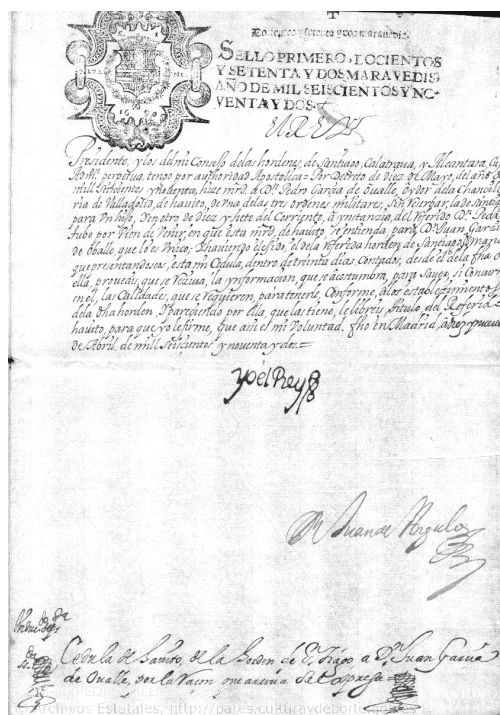 Docientos y setenta y dos maravedis.
SELLO PRIMERO, DOCIENTOS
Y SETENTA Y DOS MARAVEDIS
AÑO DE MIL SEISCIENTOS Y NO-
VENTA Y DOS.
Presidente, y los del mi Consejo de las hordenes, de Santiago, Calatraua, y Alcantara, Cuya
Adm.on perpetua, tengo por authoridad Apostolica = Por Decreto de diez de Mayo, del año de
mill seiscientos y nobenta, hize mrd. a D.n Pedro Garcia de oualle, oydor de la Chancille
ria de Valladolid, de hauito, de Vna de las tres ordenes militares, sin Reserbar, la de Santiago
para Vn hijo, y en otro de Diez y siete del Corriente, a ynstancia, del referido D.n Pedro
tube por vien de Venir, en que esta mrd. de hauito se entienda, para D.n Juan Garcia
de oballe que lo es Vnico; y hauiendo elejido el de la referida horden de Santiago, os mando
que presentandoseos, esta mi Cedula, dentro de treinta dias, Contados, desde el de la fha de
ella, proueais que se Reziua, la ynformacion, que se acostumbra, para Sauer, si Concurren
en el, las Calidades, que se requieren, para tenerle, Conforme, a los establecimientos
de la dha horden, y Pareciendo por ella, que las tiene, le libreis, titulo, del Referido
hauito, para que yo le firme, que assi es mi Voluntad. fho en Madrid, a diez y nueue
de Abril, de mill Seiscientos y nouenta y dos. =
yo el Rey
D.n Juan de Angulo
Cedula de hauito, de la horden de S.n tiago a D.n Juan Garcia
de Oualle, por la raçon que arriua se expresa =
©Archivos Estatales, http://pares.culturaydeporte